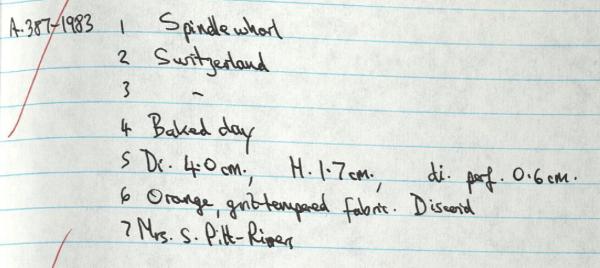 A.387-1983 1 Spindlewhorl
2 Switzerland
3 -
4 Baked clay
5 Di. 4.0cm., H. 1.7cm., di. perf. 0.6cm.
6 Orange, grit-tempered fabric. Discoid
7 Mrs. S. Pitt-Rivers